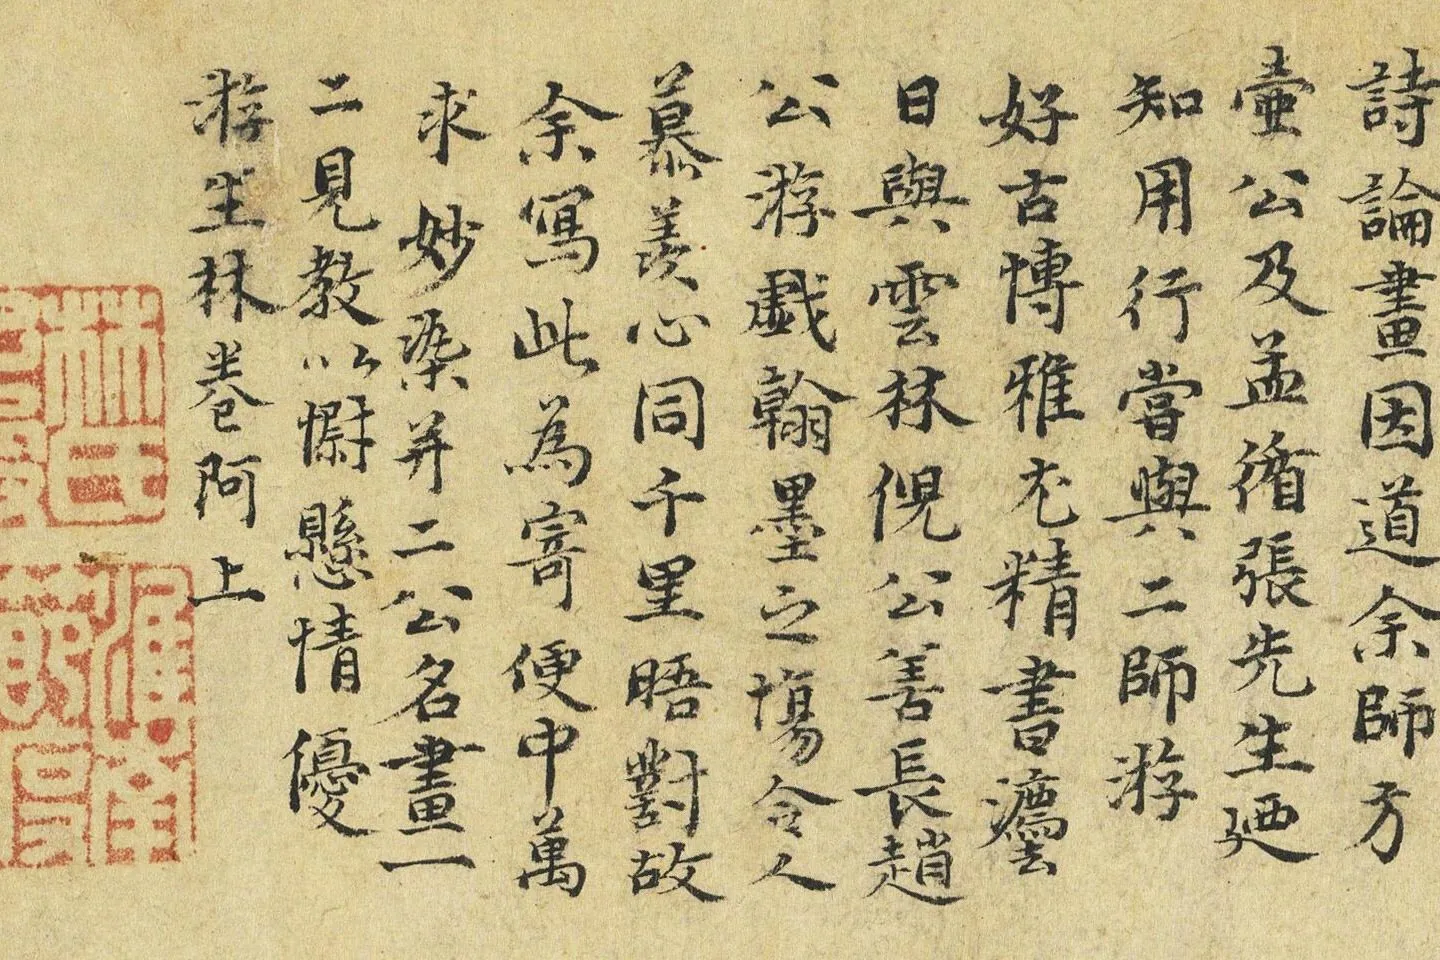 詩論畫因道余師方
壺公及孟循張先生廼
知用行嘗與二師游
好古博雅尤精書灋
日與雲林倪公善長趙
公游戲翰墨之場令人
慕羨心同千里晤對故
余寫此為寄便中萬
求妙染并二公名畫一
二見教以慰懸情優
游生林卷阿上